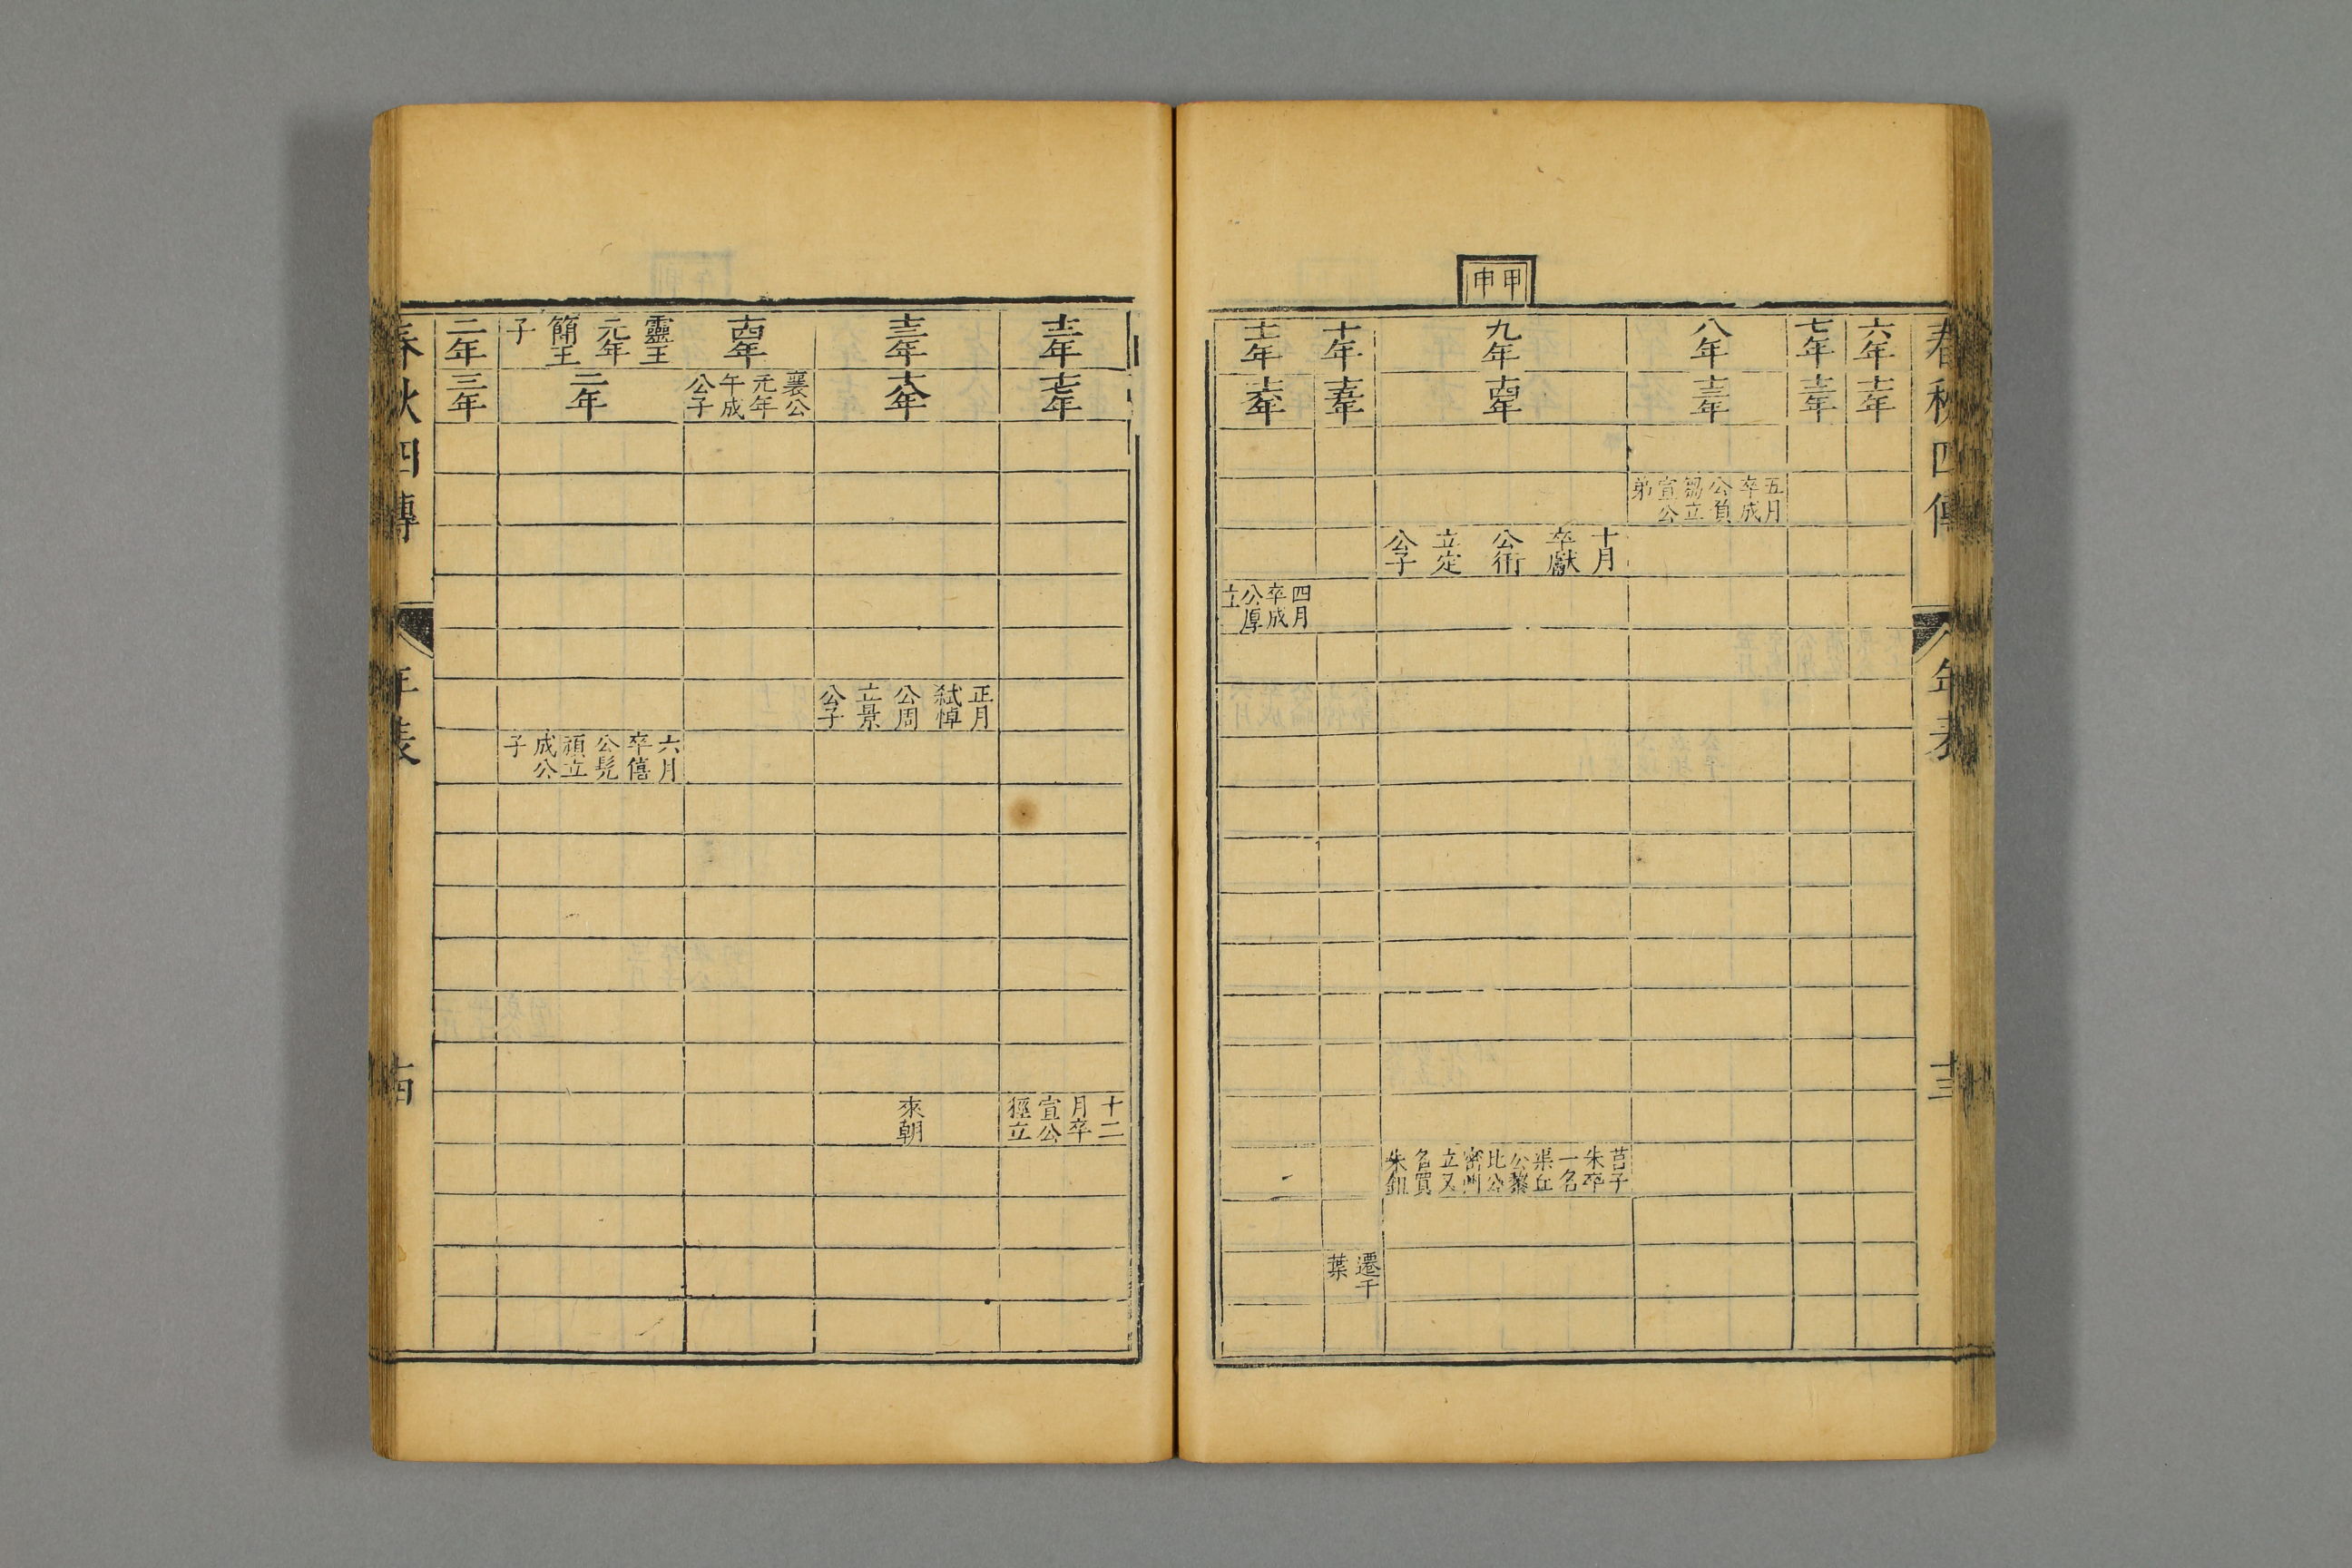 春秋四傳
年表
十三
甲申
六年
十二年
七年
十三年
八年
十三年
五月
卒成
公負
芻立
宣公
弟
九年
十四年
十月
卒獻
公衎
立定
公子
莒子
朱卒
一名
渠丘
公黎
比公
密州
立又
名買
朱鉏
十年
十五年
遷于
葉
十一年
十六年
四月
卒成
公厚
立
十二年
十七年
十二
月卒
宣公
牼立
十三年
十八年
正月
弑悼
公周
立景
公子
來朝
十四年
襄公
元年
午成
公子
靈王
元年
簡王
子
二年
六月
卒僖
公髡
頑立
成公
子
二年
三年
春秋四傳
年表
十四